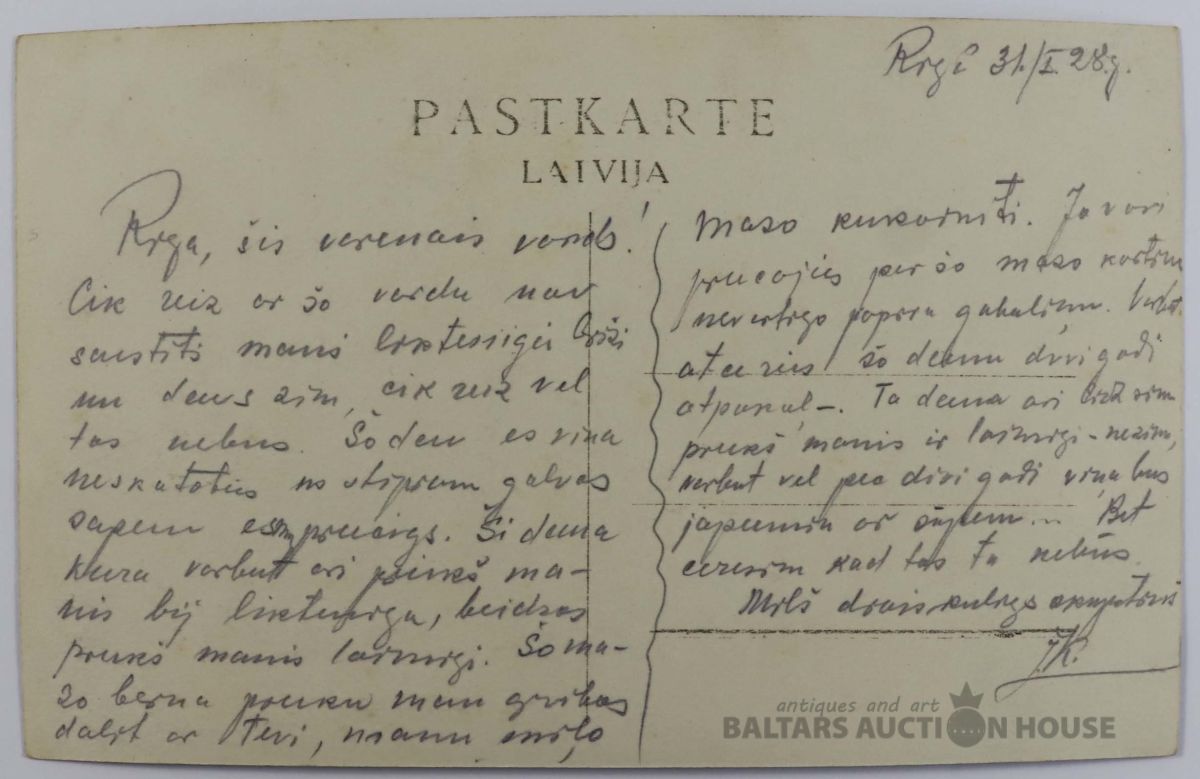 Rīgā 31./I. 28.g.
PASTKARTE
LATVIJA
Rīga, šis varenais vards!
Cik reiz ar šo vardu nav
saistīti manis liktenīgi brīži
un davs zin, cik reiz vel
tas nebus. Šodien es viņa
neskatoties no stipram galvas
sapem esmu priecigs. Ši diena
kura varbut ari priekš ma-
nis bij liktenīga, beidzas
priekš manis laimigi. Šo ma-
zo berna prieku man gribas
dalit ar Tevi, manu mīļo
mazo kukainīti. Ja vari
priecajies par šo mazo kartiņu
nevertīgo papira gabaliņu. Varbūt
atceries šo dienu divi gadi
atpakaļ-. Ta diena ari
priekš manis ir laimigi - nezinu,
varbut vel pec divi gadi viņa bus
japiemin ar sāpem... Bet
ceresim kad tas ta nebūs.
Mīļš draiskuligs
J.K.
antiques and art
BALTARS AUCTION HOUSE